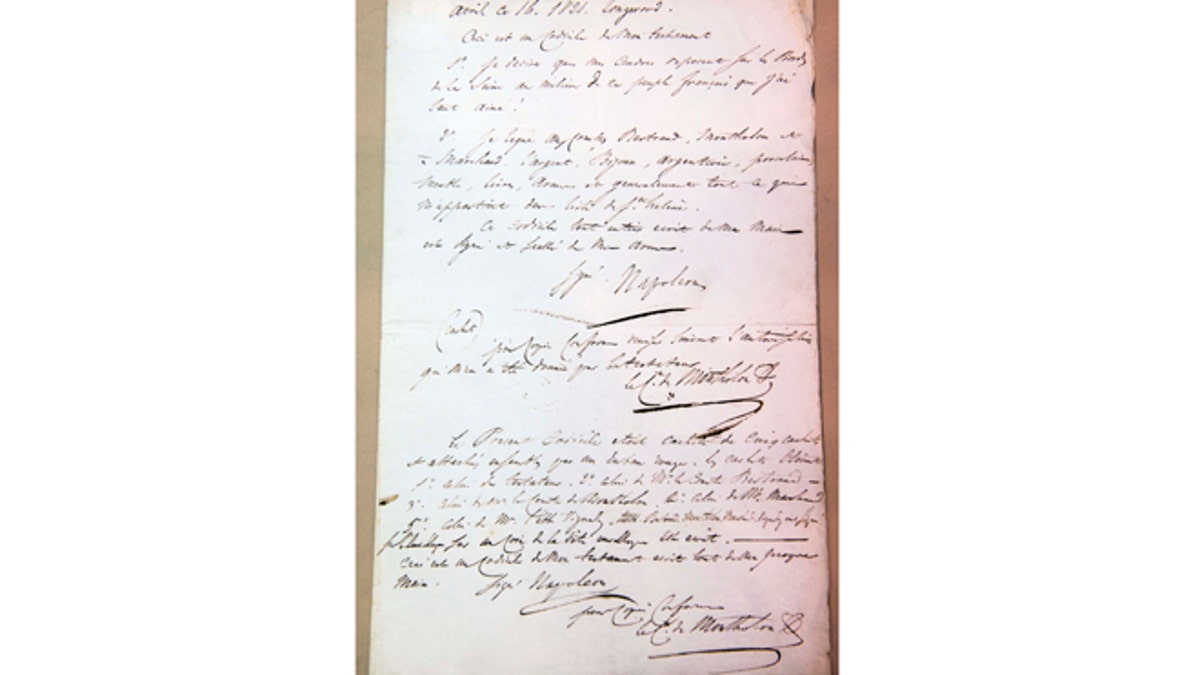 avril ce 16. 1821. Longwood.
Ceci est un Codicile de Mon testament
1º. je desire que mes cendres reposent sur les Bords
de la Seine au milieu de ce peuple français que j'ai
tant aimé!
2º je legue aux Comtes Bertrand, Montholon et
Marchand, l'argent, Bijoux, argenterie, porcelaine,
Meuble, livres, armes et generalement tout ce qui
M'appartient dans l'isle de Ste. helene.
Ce Codicile tout entier ecrit de ma Main
est signé et scellé de mes armes.
signé. Napoleon
(Cachet)
pour Copie Conforme
qui m'en a été donné par le testateur
le Cte. de Montholon
Le Present Codicile etoit cacheté de Cinq cachets
et attachés ensemble par un ruban rouge. les cachets etoient
1º. celui du testateur. 2º. celui de Mr. le Comte Bertrand
3º. celui de Mr. le Comte de Montholon, 4º. celui de Mr. Marchand
5º. celui de Mr. l'abbé Vignaly,
sur un Coin de la dite enveloppe est ecrit.
Ceci est un Codicile de Mon testament ecrit tout de Ma propre
Main. signé Napoleon
pour Copie Conforme
le Cte. de Montholon